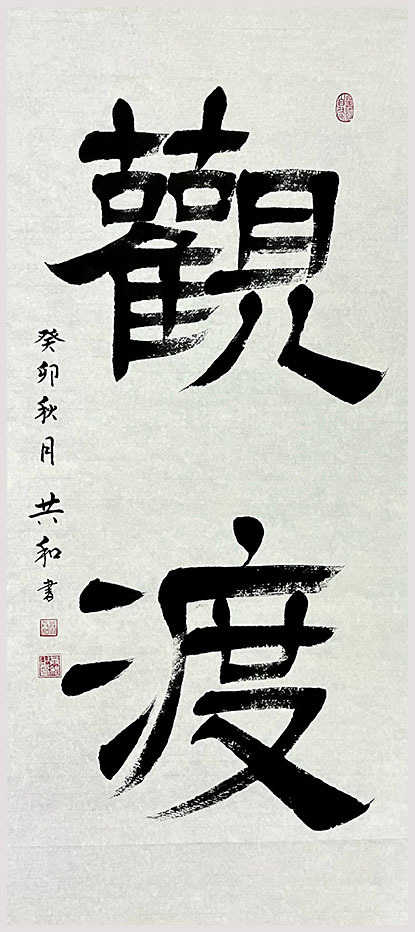 觀
渡
癸卯秋月 共和書